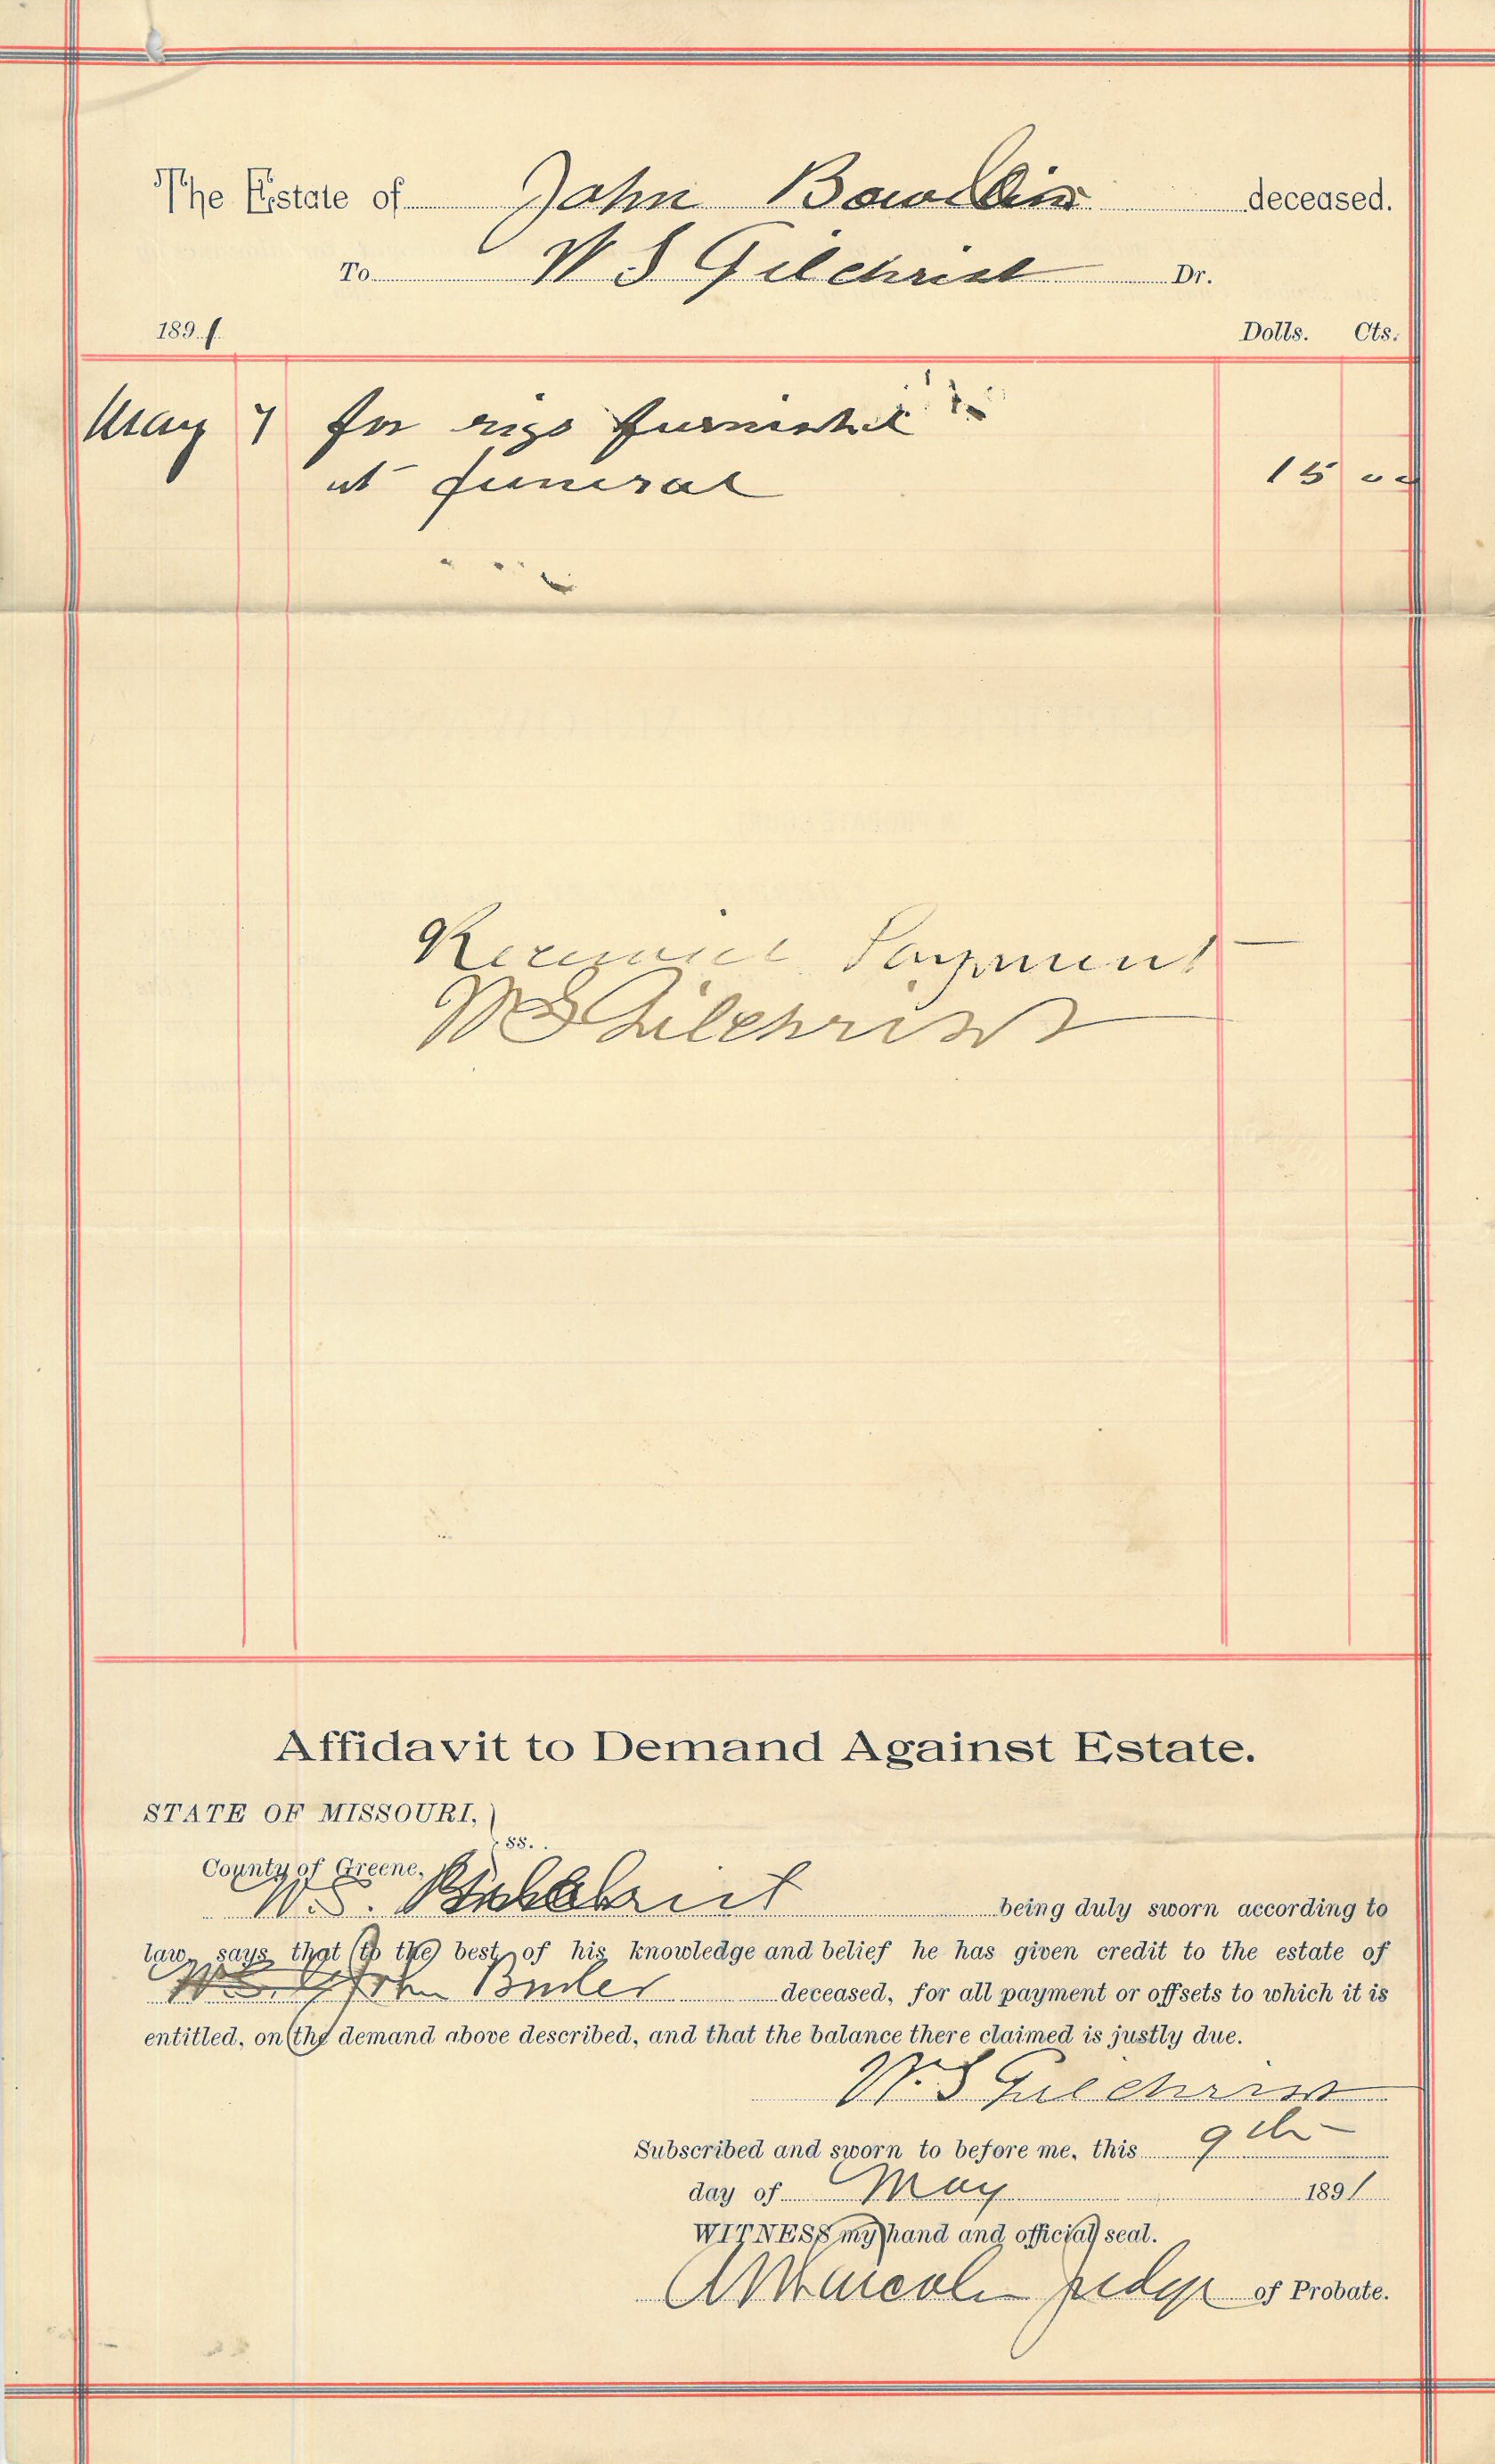 The Estate of John deceased.
To W S Gilchrist Dr.
1891 Dolls. Cts.
May 7 for rigs furnished
at funeral 15 00
Received Payment
W S Gilchrist
Affidavit to Demand Against Estate.
STATE OF MISSOURI, } ss.
County of Greene,
W. S. Gilchrist being duly sworn according to
law, says that to the best of his knowledge and belief he has given credit to the estate of
John deceased, for all payment or offsets to which it is
entitled, on the demand above described, and that the balance there claimed is justly due.
W. S Gilchrist
Subscribed and sworn to before me, this 9th
day of May 1891
WITNESS my hand and official seal.
judge of Probate.